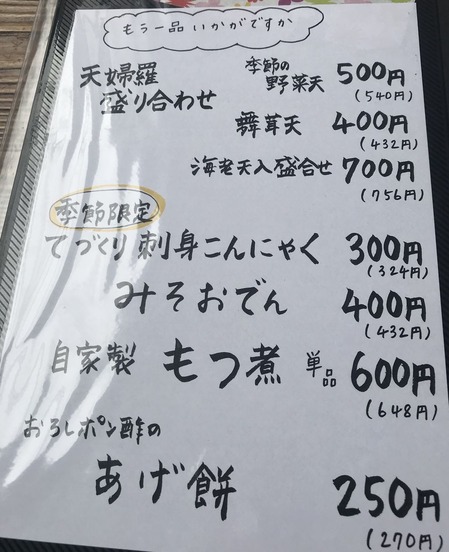 もう一品いかがですか
天婦羅
盛り合わせ
季節の
野菜天 500円
(540円)
舞茸天 400円
(432円)
海老天入盛合せ 700円
(756円)
季節限定
てづくり刺身こんにゃく 300円
(324円)
みそおでん 400円
(432円)
自家製 もつ煮 単品 600円
(648円)
おろしポン酢の
あげ餅 250円
(270円)